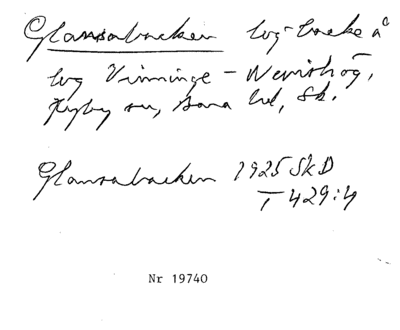 Glansabacken lvg-backe å
lvg Vinninge - Nevishög,
Kyrby sn, Bara hd, Sk.
Glansabacken 1925 SkD
T 429:4
Nr 19740